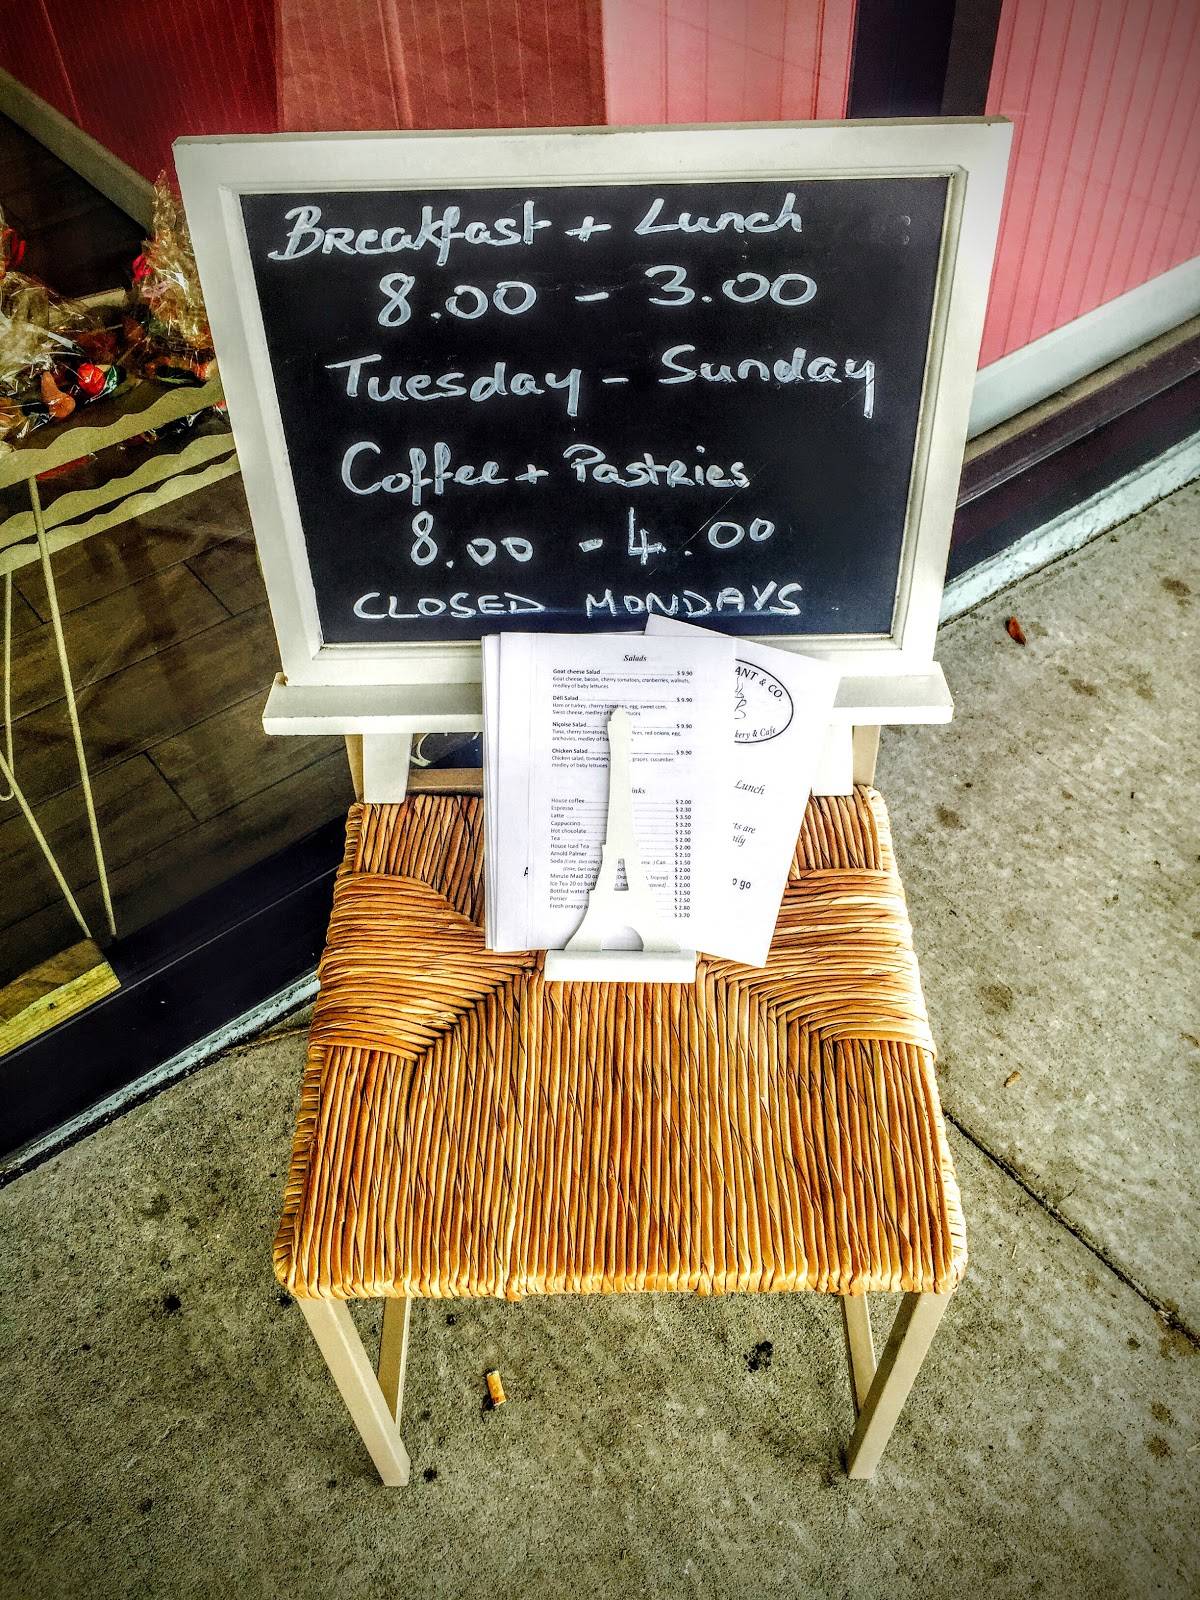 Breakfast + Lunch
8.00 - 3.00
Tuesday - Sunday
Coffee + Pastries
8.00 - 4.00
CLOSED MONDAYS
Salads
Goat cheese Salad $ 9.90
Goat cheese, bacon, cherry tomatoes, cranberries, walnuts,
medley of baby lettuces
Deli Salad $ 9.90
Ham or turkey, cherry tomatoes, egg, sweet corn,
Swiss cheese, medley of
Niçoise Salad $ 9.90
Tuna, cherry tomatoes, red onions, egg,
anchovies, medley of
Chicken Salad $ 9.90
Chicken salad, tomatoes, grapes, cucumber,
medley of baby lettuces
House coffee $ 2.00
Espresso $ 2.30
Latte $ 3.50
Cappuccino $ 3.20
Hot chocolate $ 2.50
Tea $ 2.00
House Iced Tea $ 2.00
Arnold Palmer $ 2.10
Soda Can $ 1.50
$ 2.00
Minute Maid 20 $ 2.00
Ice Tea 20 oz $ 2.00
Bottled water $ 1.50
Perrier $ 2.50
Fresh orange $ 2.80
$ 3.70
ANT & CO.
kery & Cafe
Lunch
ts are
go